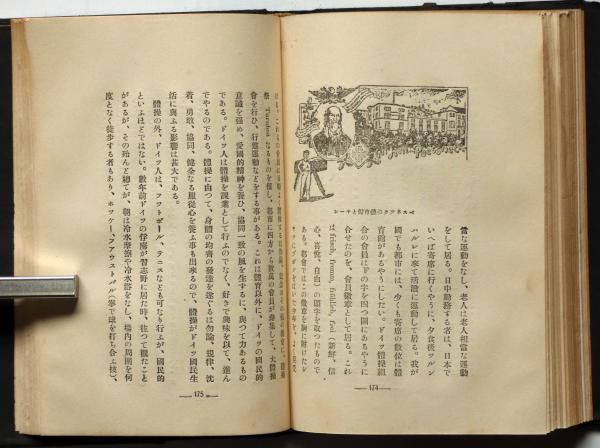 當な運動をなし、老人は老人相當な運動
をして居る。日中勤務する者は、日本で
いへば寄席に行くやうに、夕食後ツルン
ハルレに來て活潑に運動して居る。我が
國でも都市には、少くも寄席の數位は體
育館があるやうにしたい。ドイツ體操組
合の會員はFの字を四つ圖にあるやうに
合せたのを、會員徽章として居る。これ
は frisch, fromm, fröhlich, frei（新鮮、信
心、喜悅、自由）の頭字を取つたもので
ある。都會ではこの徽章を胸に附けた
—174—
祭 Turnfest なるものを催し、都市に四方から數萬の會員が參集して、大體操
會を行ひ、行進運動などをする事がある。これは體育以外に、ドイツの國民的
意識を强め、愛國的精神を養ひ、協同一致の風を生ずるに、與つて力あるもの
である。ドイツ人は體操を課業として行ふのでなく、好きで興味を以て、進ん
でやるのである。體操に由つて、身體の均齊の發達を遂ぐるは勿論、規律、沈
着、勇敢、協同、健全なる服從心を養ふ事も出來るので、體操がドイツ國民生
活に與ふる影響は甚大である。
體操の外、ドイツ人は、フツトボール、テニスなども可なり行ふが、國民的
といふほどではない。數年前ドイツの俘虜が習志野に居た時、往つて觀たこと
があるが、その殆んど總てが、朝は冷水摩擦や冷水浴をなし、場內の周圍を何
度となく徒步する者もあり、ホツケー、フアウストバル（拳で球を打ち合ふ技）、
—175—